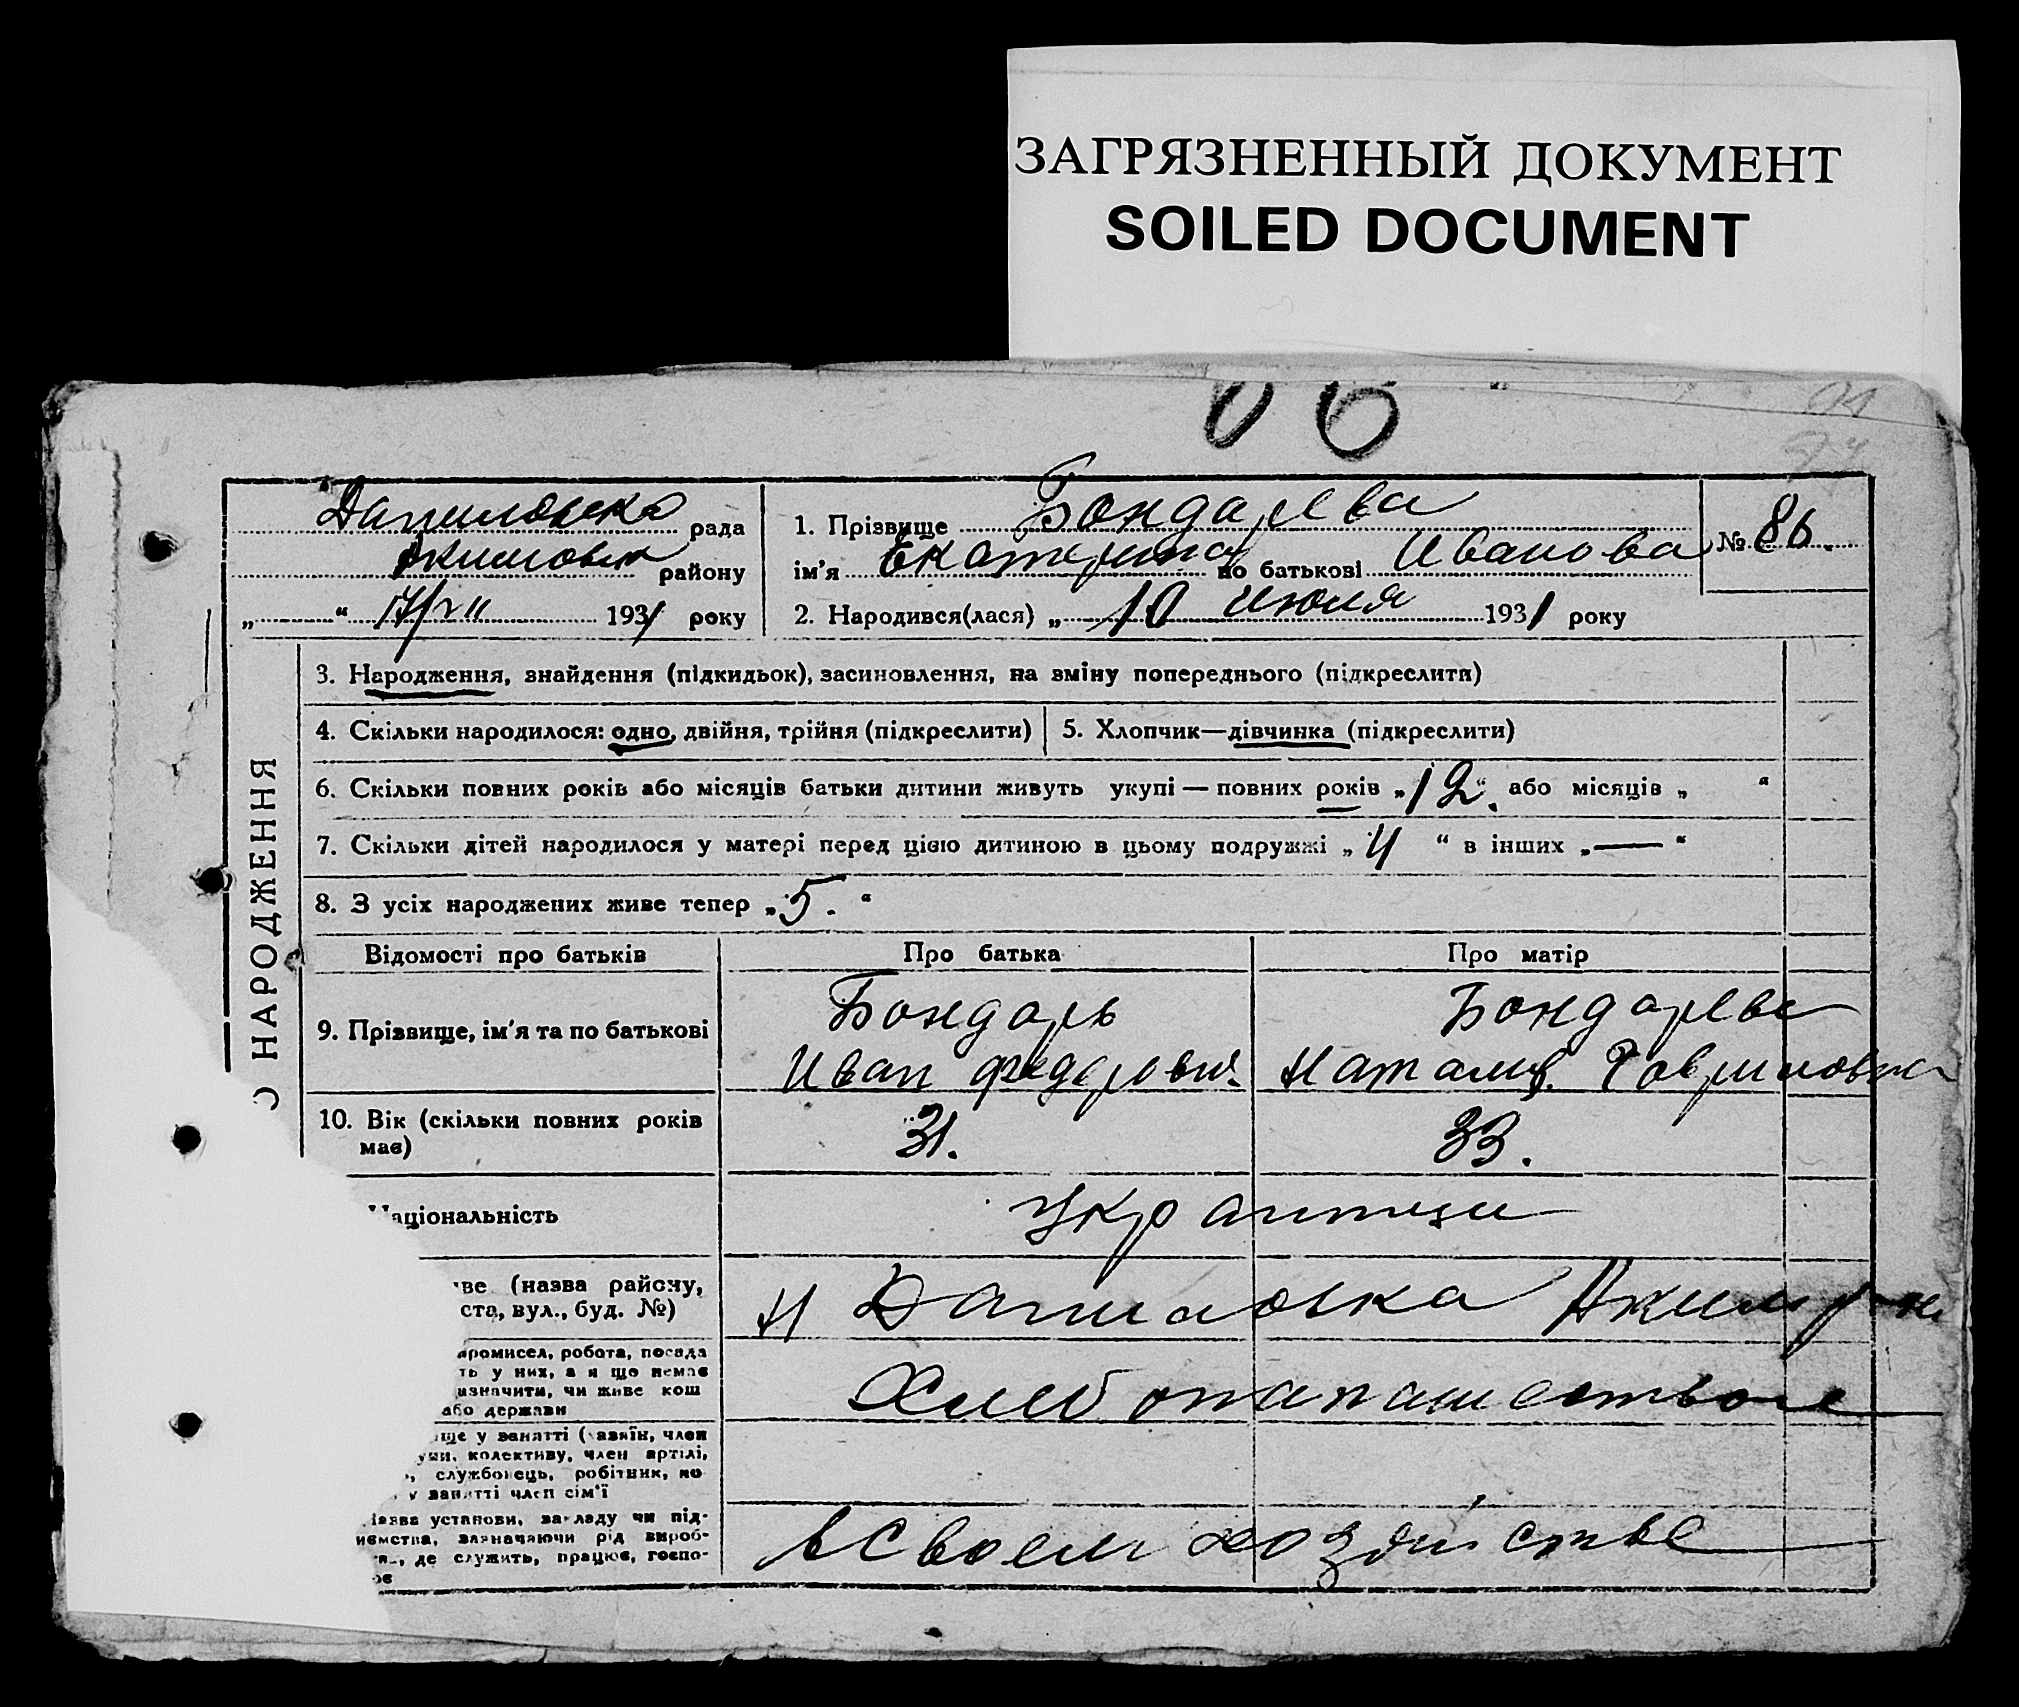 ЗАГРЯЗНЕННЫЙ ДОКУМЕНТ
SOILED DOCUMENT
86
Даниловска рада
Акимовск району
„ “ 17/VII 1931 року
1. Прізвище Бондарева
ім'я Екатерина по батькові Иванова
№ 86.
2. Народився(лася) „ 10 Июля 1931 року
О НАРОДЖЕННЯ
3. Народження, знайдення (підкидьок), засиновлення, на зміну попереднього (підкреслити)
4. Скільки народилося: одно, двійня, трійня (підкреслити)
5. Хлопчик—дівчинка (підкреслити)
6. Скільки повних років або місяців батьки дитини живуть укупі — повних років „12“. або місяців „ “
7. Скільки дітей народилося у матері перед цією дитиною в цьому подружжі „ 4 “ в інших „ — “
8. З усіх народжених живе тепер „ 5. “
Відомості про батьків Про батька Про матір
9. Прізвище, ім'я та по батькові
Бондарь
Иван Федорович
Бондарева
Наталия Гавриловна
10. Вік (скільки повних років
має)
31. 33.
Національність
Украинци
ве (назва району,
ста, вул., буд. №)
Н Даниловка Аким р-н
промисел, робота, посада
ть у них, а я що немає
азначити, чи живе кош
або держави
Хлебопашеством
ще у занятті (хазяїн, член
уни, колективу, член артілі,
службонець, робітник, по
у занятті член сім'ї
Назва установи, закладу чи під-
иємства, зазначаючи рід вироб-
де служить, працює, госпо-
ює
в своем хозяйстве